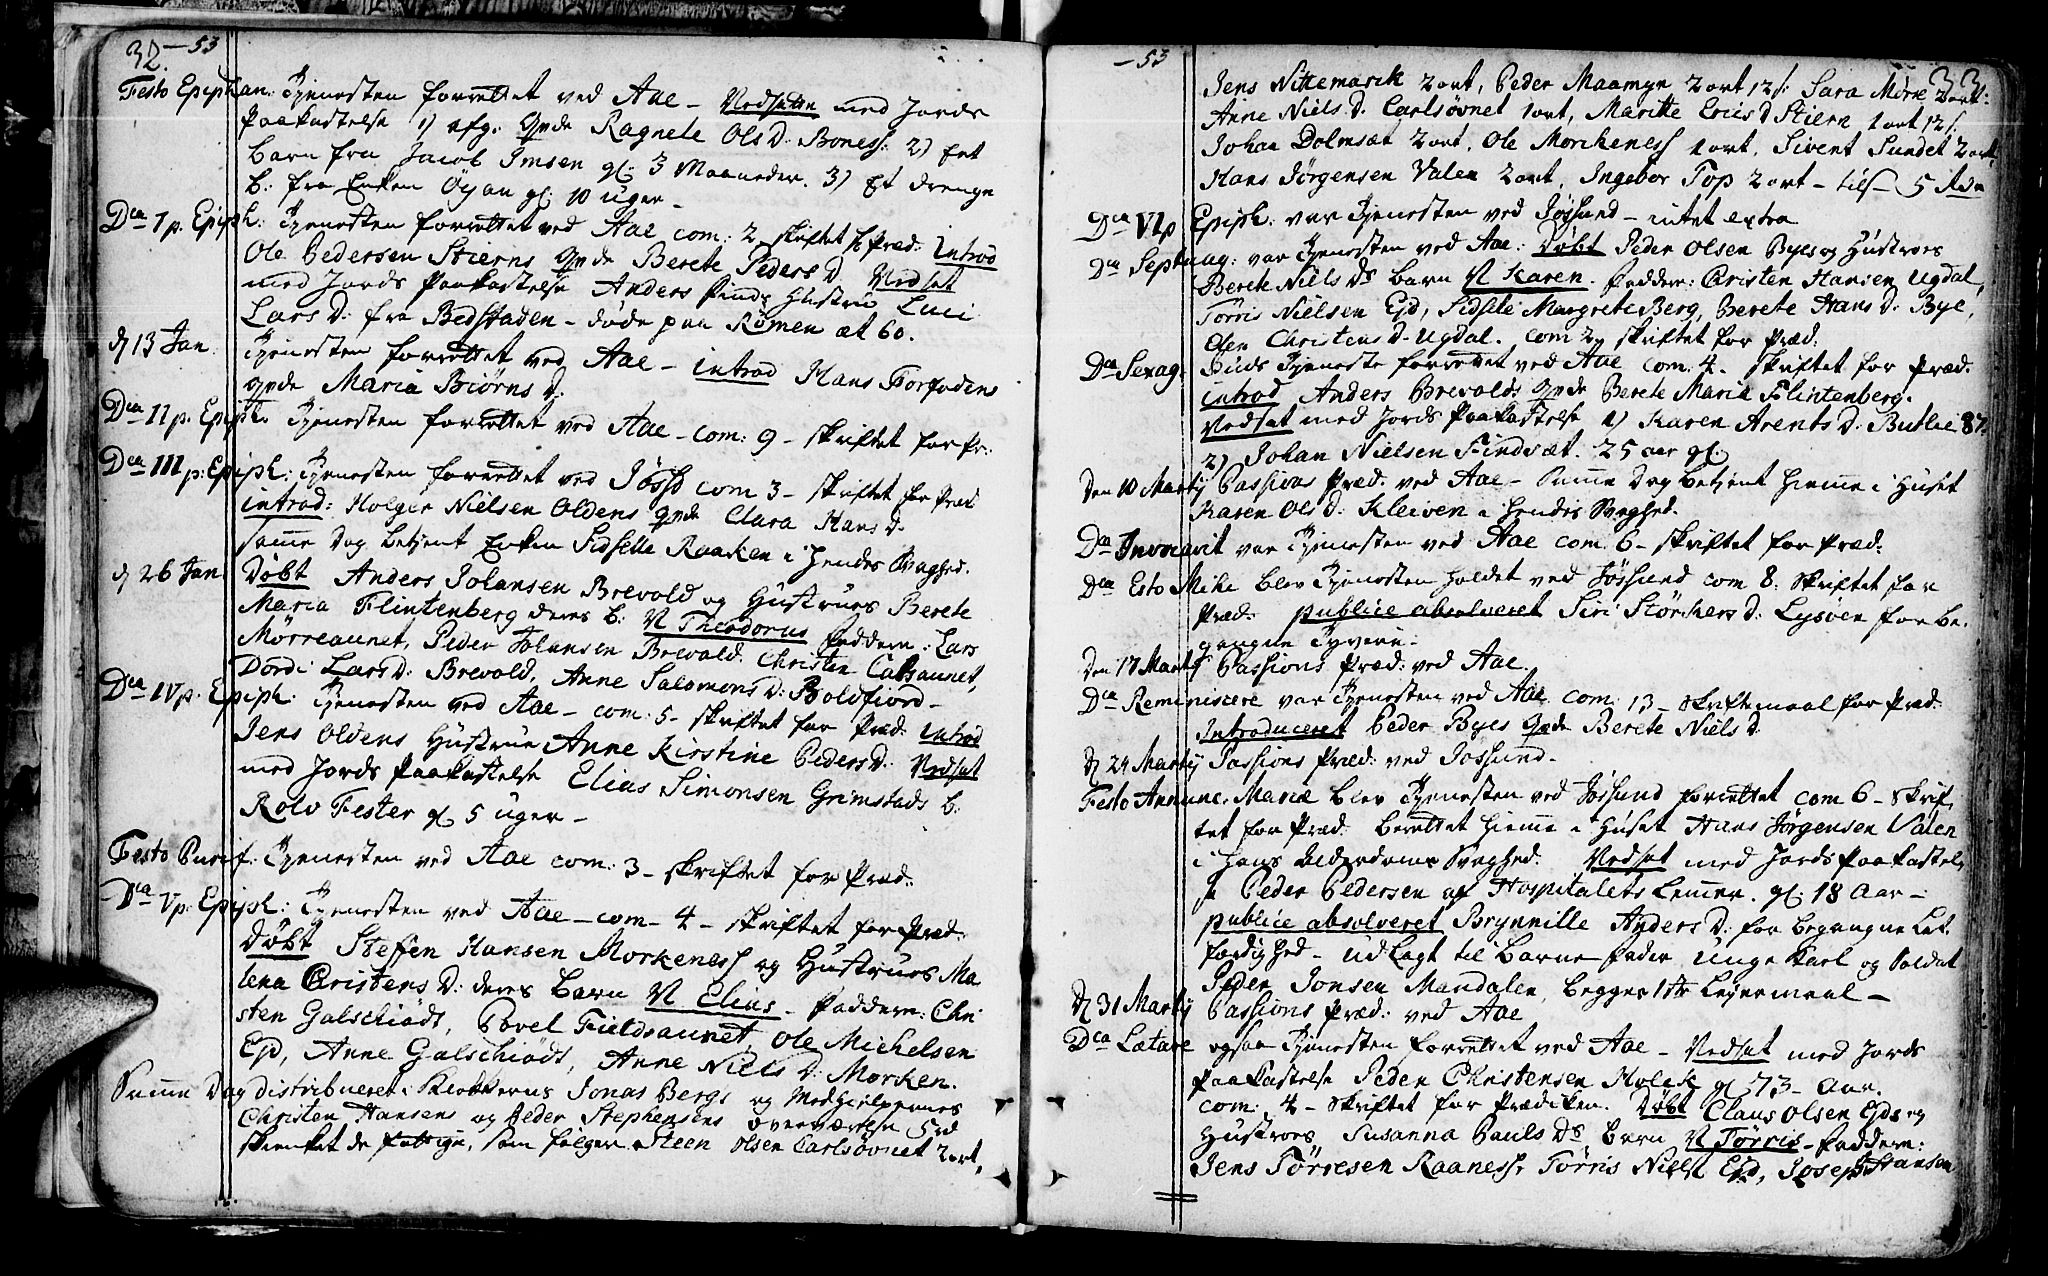 32. -53
Festo Epiphan: Tjenesten forrettet ved Aae - Vedsatte med Jords
Paakastelse 1) afg: Qvde Ragnete OlsD: Boness: 2) Eet
barn fra Jacob Imsen gl: 3 Maaneder. 3) Et drenge
b: fra Enken Öyan gl: 10 uger -
Dca 1 p. Epiph: Tjenesten forrettet ved Aae com: 2 skriftet f Præd: introd
Ole Pedersen Stierns Qvde Berete PedersD. Vedsat
med Jords Paakastelse Anders Hustru Luci
LarsD: fra Bedstaden - døde paa Römen æt 60.
d 13 Jan. Tjenesten forrettet ved Aae - introd Hans Torfadens
Qvde Maria BiörnsD:
Dca II p. Epiph. Tjenesten forrettet ved Aae - com: 9 - skriftet for Pr:
Dca III p: Epiph: Tjenesten forrettet ved Jössd com 3 - skriftet for Præd
introd: Holger Nielsen Oldens Qvde Clara HansD.
samme Dag betjent Enken Sidselle Raaken i hendes Svaghed.
d 26 Jan. Döbt Anders Johansen Brevold og Hustrues Berete
Maria Flintenberg deres b: N Theodorus Faddere: Lars
Mörreaunet, Peder Johansen Brevold. Christen Calsaunet,
Dordi LarsD: Brevold, Anne SalomonsD: Boldfiord -
Dca IV p: Epiph. Tjenesten ved Aae - com: 5 - skriftet for Præd. introd
Jens Oldens Hustrue Anne Kirstine PedersD: Vedsat
med Jords Paakastelse Elias Simonsen Grimstads b:
Rolv Fester gl 5 uger -
Festo Purif: Tjenesten ved Aae com: 3 - skriftet for Præd:
Dca V p: Epiph: Tjenesten ved Aae - com - 4 - skriftet for Præd:
Döbt Steffen Hansen Morkeness og Hustrues Ma
lena ChristensD: deres barn N Elias - Faddere: Chri
sten Galschiödt, Povel Fieldsaunet, Ole Michelsen
Eid, Anne Galschiödt, Anne NielsD: Morken.
Samme Dag distribueret i Klokkerens Jonas Bergs og Medhielpernes
Christen Hansens og Peder Stephensens overværelse 5rd
skienket de fattige, som fölger Steen Olsen Carlsövnet 2ort,
- 53 33
Jens Nittemarck 2ort, Peder Maamyn 2ort 12s: Sara Möre 2ort:
Anne NielsD. Carlsövnet 1ort, Maritte EricsD Stiern 1ort 12s:
Johan Dolmsæt 2ort, Ole Morckeness 1ort, Sivert Sundet 2ort,
Hans Jörgensen Valen 2ort, Ingebor Top 2ort - tils - 5 Rdr
Dca VI p Epiph: var Tjenesten ved Jössund - intet extra
Dca Septuag: var Tjenesten ved Aae: Döbt Peder Olsen Byes og Hustroes
Berete NielsDs barn N Karen. Faddere: Christen Hansen Ugdal,
Törris Nielsen Eid, Sidsele Margrete Berg, Berete HansD: Bye,
Elen ChristensD. Ugdal. com 2 skriftet for Præd:
Dca Sexag: Guds Tjeneste forrettet ved Aae com: 4. skriftet for Præd.
introd Anders Brevolds Qvde Berete Maria Flintenberg.
Vedsat med Jords Paakastelse 1) Karen ArentsD: Butlie 87.
2) Johan Nielsen Findsæt. 25 aar gl.
Den 10 Martij Passions Præd. ved Aae - Samme Dag betjent hiemme i Huset
Karen OlsD: Kleiven i hendes Svaghed.
Dca Invocavit var Tjenesten ved Aae com: 6 - skriftet for Præd:
Dca Esto Mihi blev Tjenesten holdet ved Jössund com 8: skriftet for
Præd: publice absolveret Siri StörckersD: Lysöen for be-
gangne Tyverie -
Den 17 Martij Passions Præd: ved Aae.
Dca Reminiscere var Tjenesten ved Aae com: 13 - skriftemaal for Præd.
Introduceret Peder Byes Qvde Berete NielsD.
d 24 Martij Passions Præd: ved Jossund -
Festo Annunc. Mariæ blev Tjenesten ved Jössund forrettet com 6 - skrif
tet for Præd. berettet hiemme i Huset Hans Jörgensen Valen
i hans Alderdoms Svaghed: Vedsat med Jords Paakastel,
se Peder Pedersen af Hospitalets Lemmer. gl: 18 Aar -
publice absolveret Brynnille AndersD: for begangne Let
færdighed - udlagt til barne fader unge karl og Soldat
Peder Jonsen Mandalen, begges 1ste Leyermaal -
d 31 Martij Passions Præd: ved Aae
Dca Lætare ogsaa Tjenesten forrettet ved Aae - Vedsat med Jords
Paakastelse Peder Christensen Holck gl 73 - Aar.
com: 4 - skriftet for Prædiken. Döbt Claus Olsen Eids og
Hustroes Susanna PaulsDs barn N Törris - Faddere:
Jens Törresen Raaness, Törris Niels: Eid, Joseph Hansen